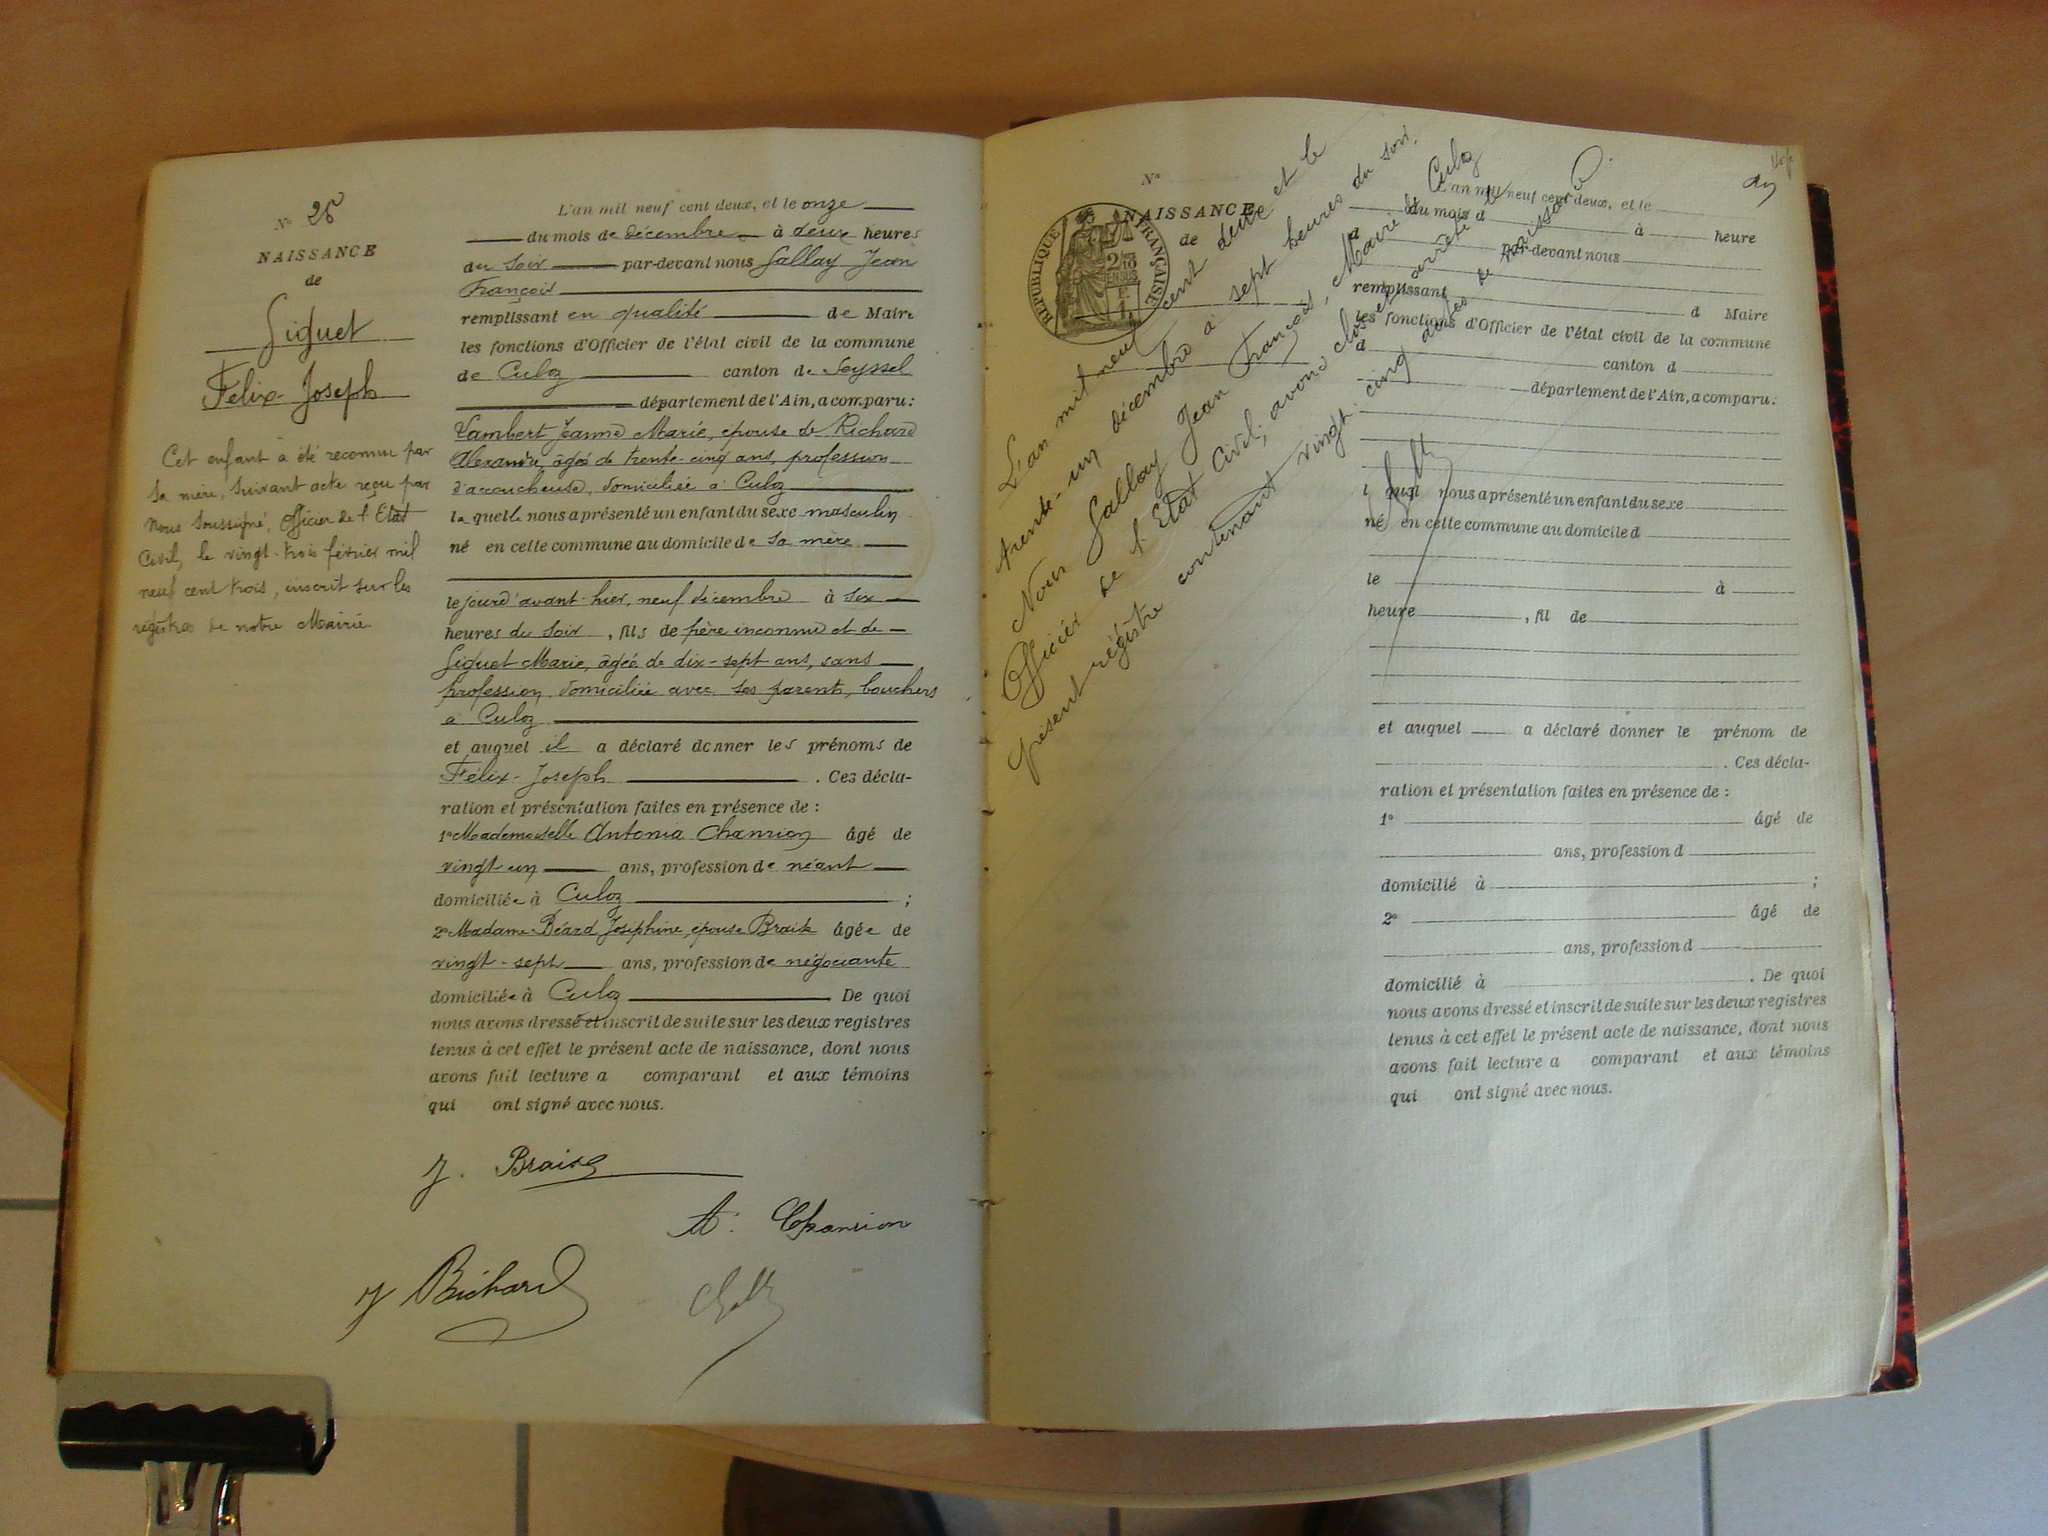 N° 25
NAISSANCE
de
Giguet
Félix-Joseph
Cet enfant a été reconnu par
sa mère, suivant acte reçu par
Nous soussigné, Officier de l'Etat
Civil, le vingt-trois février mil
neuf cent trois, inscrit sur les
registres de notre Mairie
L'an mil neuf cent deux, et le onze
du mois de décembre à deux heures
du soir par-devant nous Gallay Jean
François
remplissant en qualité de Maire
les fonctions d'Officier de l'état civil de la commune
de Culoz canton de Seyssel
département de l'Ain, a comparu :
Lambert Jeanne Marie, épouse de Richard
Alexandre, âgée de trente-cinq ans, profession
d'accoucheuse, domiciliée à Culoz
la quelle nous a présenté un enfant du sexe masculin
né en cette commune au domicile de sa mère
le jour d'avant-hier, neuf décembre à six
heures du soir, fils de père inconnu et de
Giguet Marie, âgée de dix-sept ans, sans
profession, domiciliée avec ses parents, bouchers
à Culoz
et auquel il a déclaré donner les prénoms de
Félix-Joseph. Ces décla-
ration et présentation faites en présence de :
1° Mademoiselle Antonia Chanrion âgé de
vingt un ans, profession de néant
domiciliée à Culoz ;
2° Madame Béard Joséphine, épouse Braise âgée de
vingt-sept ans, profession de négociante
domiciliée à Culoz De quoi
nous avons dressé et inscrit de suite sur les deux registres
tenus à cet effet le présent acte de naissance, dont nous
avons fait lecture a comparant et aux témoins
qui ont signé avec nous.
J. Braise
A. Chanrion
J Richard
N°
NAISSANCE
de
RÉPUBLIQUE FRANÇAISE
L'an mil neuf cent deux et le
trente-un décembre à sept heures du soir,
Nous Gallay Jean François, Maire de Culoz
Officier de l'Etat Civil, avons clos et arrêté le
présent régistre contenant vingt-cinq actes de naissance
L'an mil neuf cent deux, et le
du mois d à heure
d par-devant nous
remplissant d Maire
les fonctions d'Officier de l'état civil de la commune
d canton d
département de l'Ain, a comparu :
l quel nous a présenté un enfant du sexe
né en cette commune au domicile d
le à
heure , fil de
et auquel a déclaré donner le prénom de
. Ces décla-
ration et présentation faites en présence de :
1° âgé de
ans, profession d
domicilié à ;
2° âgé de
ans, profession d
domicilié à . De quoi
nous avons dressé et inscrit de suite sur les deux registres
tenus à cet effet le présent acte de naissance, dont nous
avons fait lecture a comparant et aux témoins
qui ont signé avec nous.